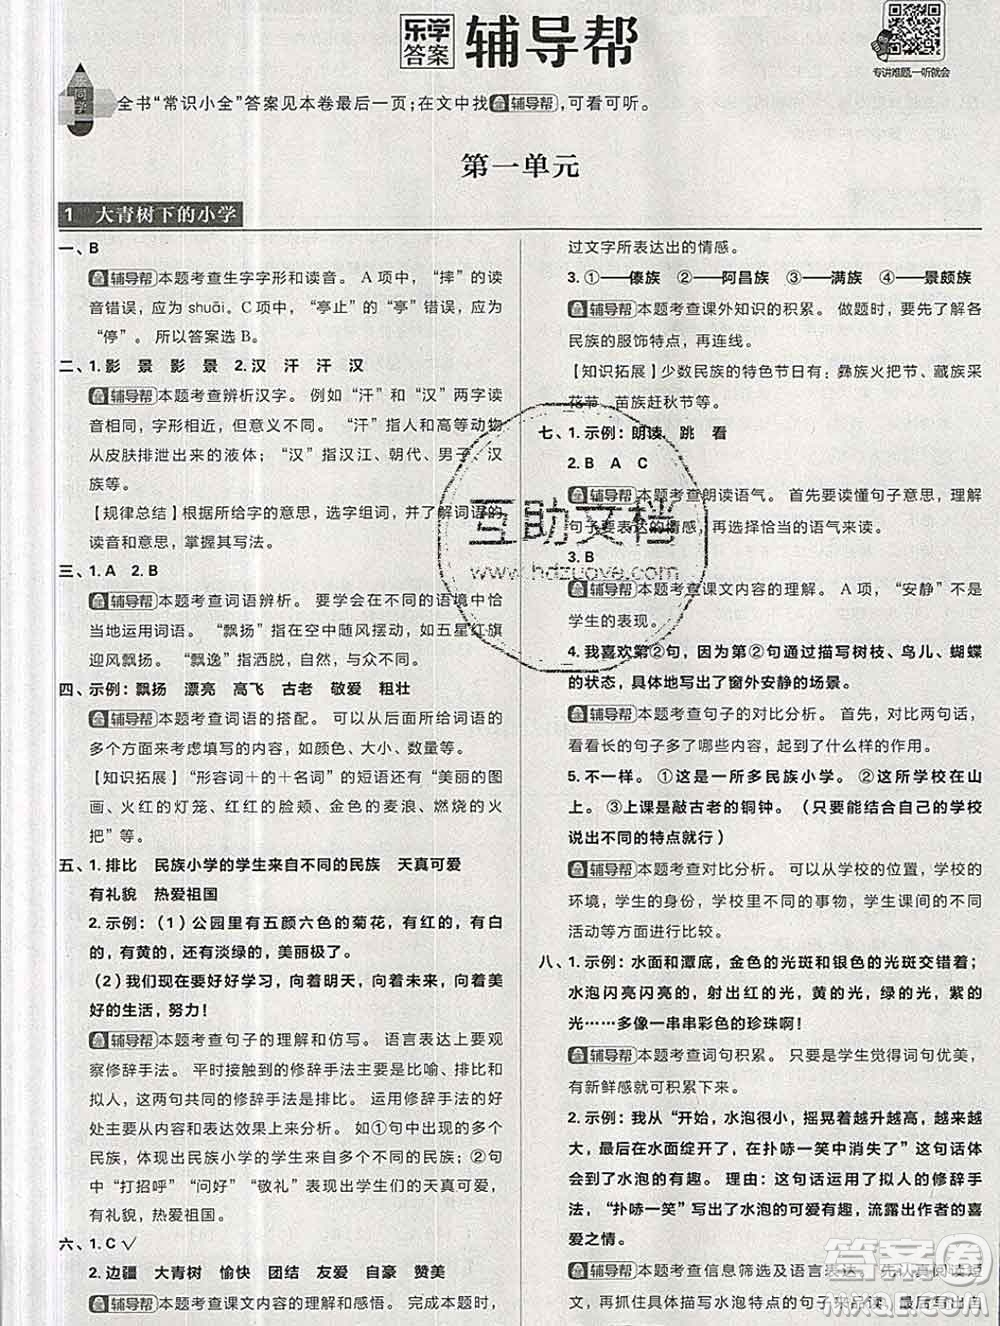 乐学
答案
辅导帮
专讲难题,一听就会
全书“常识小全”答案见本卷最后一页;在文中找辅导帮,可看可听。
第一单元
1 大青树下的小学
一、B
辅导帮 本题考查生字字形和读音。A 项中，“摔”的读
音错误，应为 shuāi。C 项中，“亭止”的“亭”错误，应为
“停”。所以答案选 B。
二、1.影 景 影 景 2.汉 汗 汗 汉
辅导帮 本题考查辨析汉字。例如“汗”和“汉”两字读
音相同，字形相近，但意义不同。“汗”指人和高等动物
从皮肤排泄出来的液体；“汉”指汉江、朝代、男子、汉
族等。
【规律总结】根据所给字的意思，选字组词，并了解词语的
读音和意思，掌握其写法。
三、1.A 2.B
辅导帮 本题考查词语辨析。要会在不同的语境中恰
当地运用词语。“飘扬”指在空中随风摆动，如五星红旗
迎风飘扬。“飘逸”指洒脱，自然，与众不同。
四、示例：飘扬 漂亮 高飞 古老 敬爱 粗壮
辅导帮 本题考查词语的搭配。可以从后面所给词语的
多个方面来考虑填写的内容，如颜色、大小、数量等。
【知识拓展】“形容词＋的＋名词”的短语还有“美丽的图
画、火红的灯笼、红红的脸颊、金色的麦浪、燃烧的火
把”等。
五、1.排比 民族小学的学生来自不同的民族 天真可爱
有礼貌 热爱祖国
2.示例：（1）公园里有五颜六色的菊花，有红的，有白
的，有黄的，还有淡绿的，美丽极了。
（2）我们现在要好好学习，向着明天，向着未来，向着美
好的生活，努力！
辅导帮 本题考查句子的理解和仿写。语言表达上要观
察修辞手法。平时接触到的修辞手法是比喻、排比和
拟人，这两句共同的修辞手法是排比。运用修辞手法的好
处要结合内容和表达效果分析。如①句中出现的多个
民族，体现民族小学的学生来自不同的民族；②句
中“打招呼”“问好”“敬礼”表现出学生们的天真可爱，
有礼貌，热爱祖国。
六、1.C √
2.边疆 大青树 愉快 团结 友爱 自豪 赞美
辅导帮 本题考查课文内容的理解和感悟。完成本题时，
过文字所表达出的情感。
3.①——傣族 ②——阿昌族 ③——满族 ④——景颇族
辅导帮 本题考查课外知识的积累。做题时，要了解各
民族的服饰特点，再连线。
【知识拓展】少数民族的特色节日有：彝族火把节、藏族采
花节、苗族赶秋节等。
七、1.示例：朗读 跳 看
2.B A C
辅导帮 本题考查朗读语气。首先要读懂句子意思，理解
句子要表达的情感，再选择恰当的语气来读。
3.B
辅导帮 本题考查课文内容的理解。A 项，“安静”不是
学生的表现。
4.我喜欢第②句，因为第②句通过描写树枝、鸟儿、蝴蝶
的状态，具体地写出了窗外安静的场景。
辅导帮 本题考查句子的对比分析。首先，对比两句话，
看看长的句子多了哪些内容，起到了什么样的作用。
5.不一样。①这是一所多民族小学。②这所学校在山
上。③上课是敲古老的铜钟。（只要能结合自己的学校
说出不同的特点就行）
辅导帮 本题考查对比分析。可以从学校的位置，学校的
环境，学生的身份，学校里不同的事物，学生课间的不同
活动等方面进行比较。
八、1.示例：水面和潭底，金色的光斑和银色的光斑交错着；
水泡闪亮闪亮的，射出一道道的光，黄的光，绿的光，紫的
光……多像一串串彩色的珍珠啊！
辅导帮 本题考查词句积累。只要是学生觉得词句优美，
有新鲜感就可积累下来。
2.示例：我从“开始，水泡很小，摇晃着越升越高，越来越
大，最后在水面绽开了，在扑哧一笑中消失了”这句话体
会到了水泡的有趣。理由：这句话运用了拟人的修辞手
法，“扑哧一笑”写出了水泡的可爱有趣，流露出作者的喜
爱之情。
辅导帮 本题考查信息筛选及语言表达。先认真阅读短
文，再抓住具体描写水泡特点的句子来品读，最后写出自
互助文档
www.hdzuowe.com
答案圈